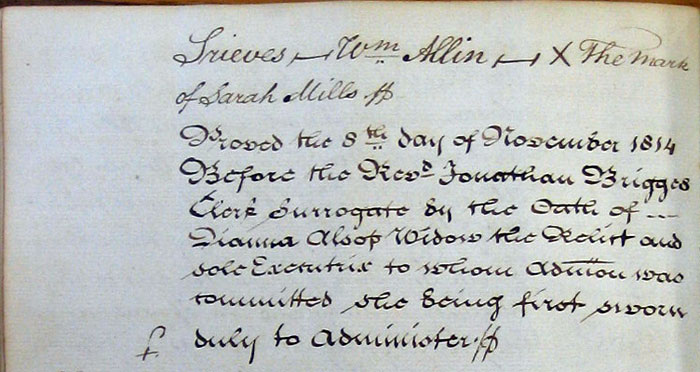 Grieves — Wm Allin — X The mark
of Sarah Mills
Proved the 8th day of November 1814
Before the Revd Jonathan Brigges
Clerk Surrogate by the Oath of ---
Dianna Alsop Widow the Relict and
sole Executrix to whom Admon was
committed she being first sworn
duly to Administer